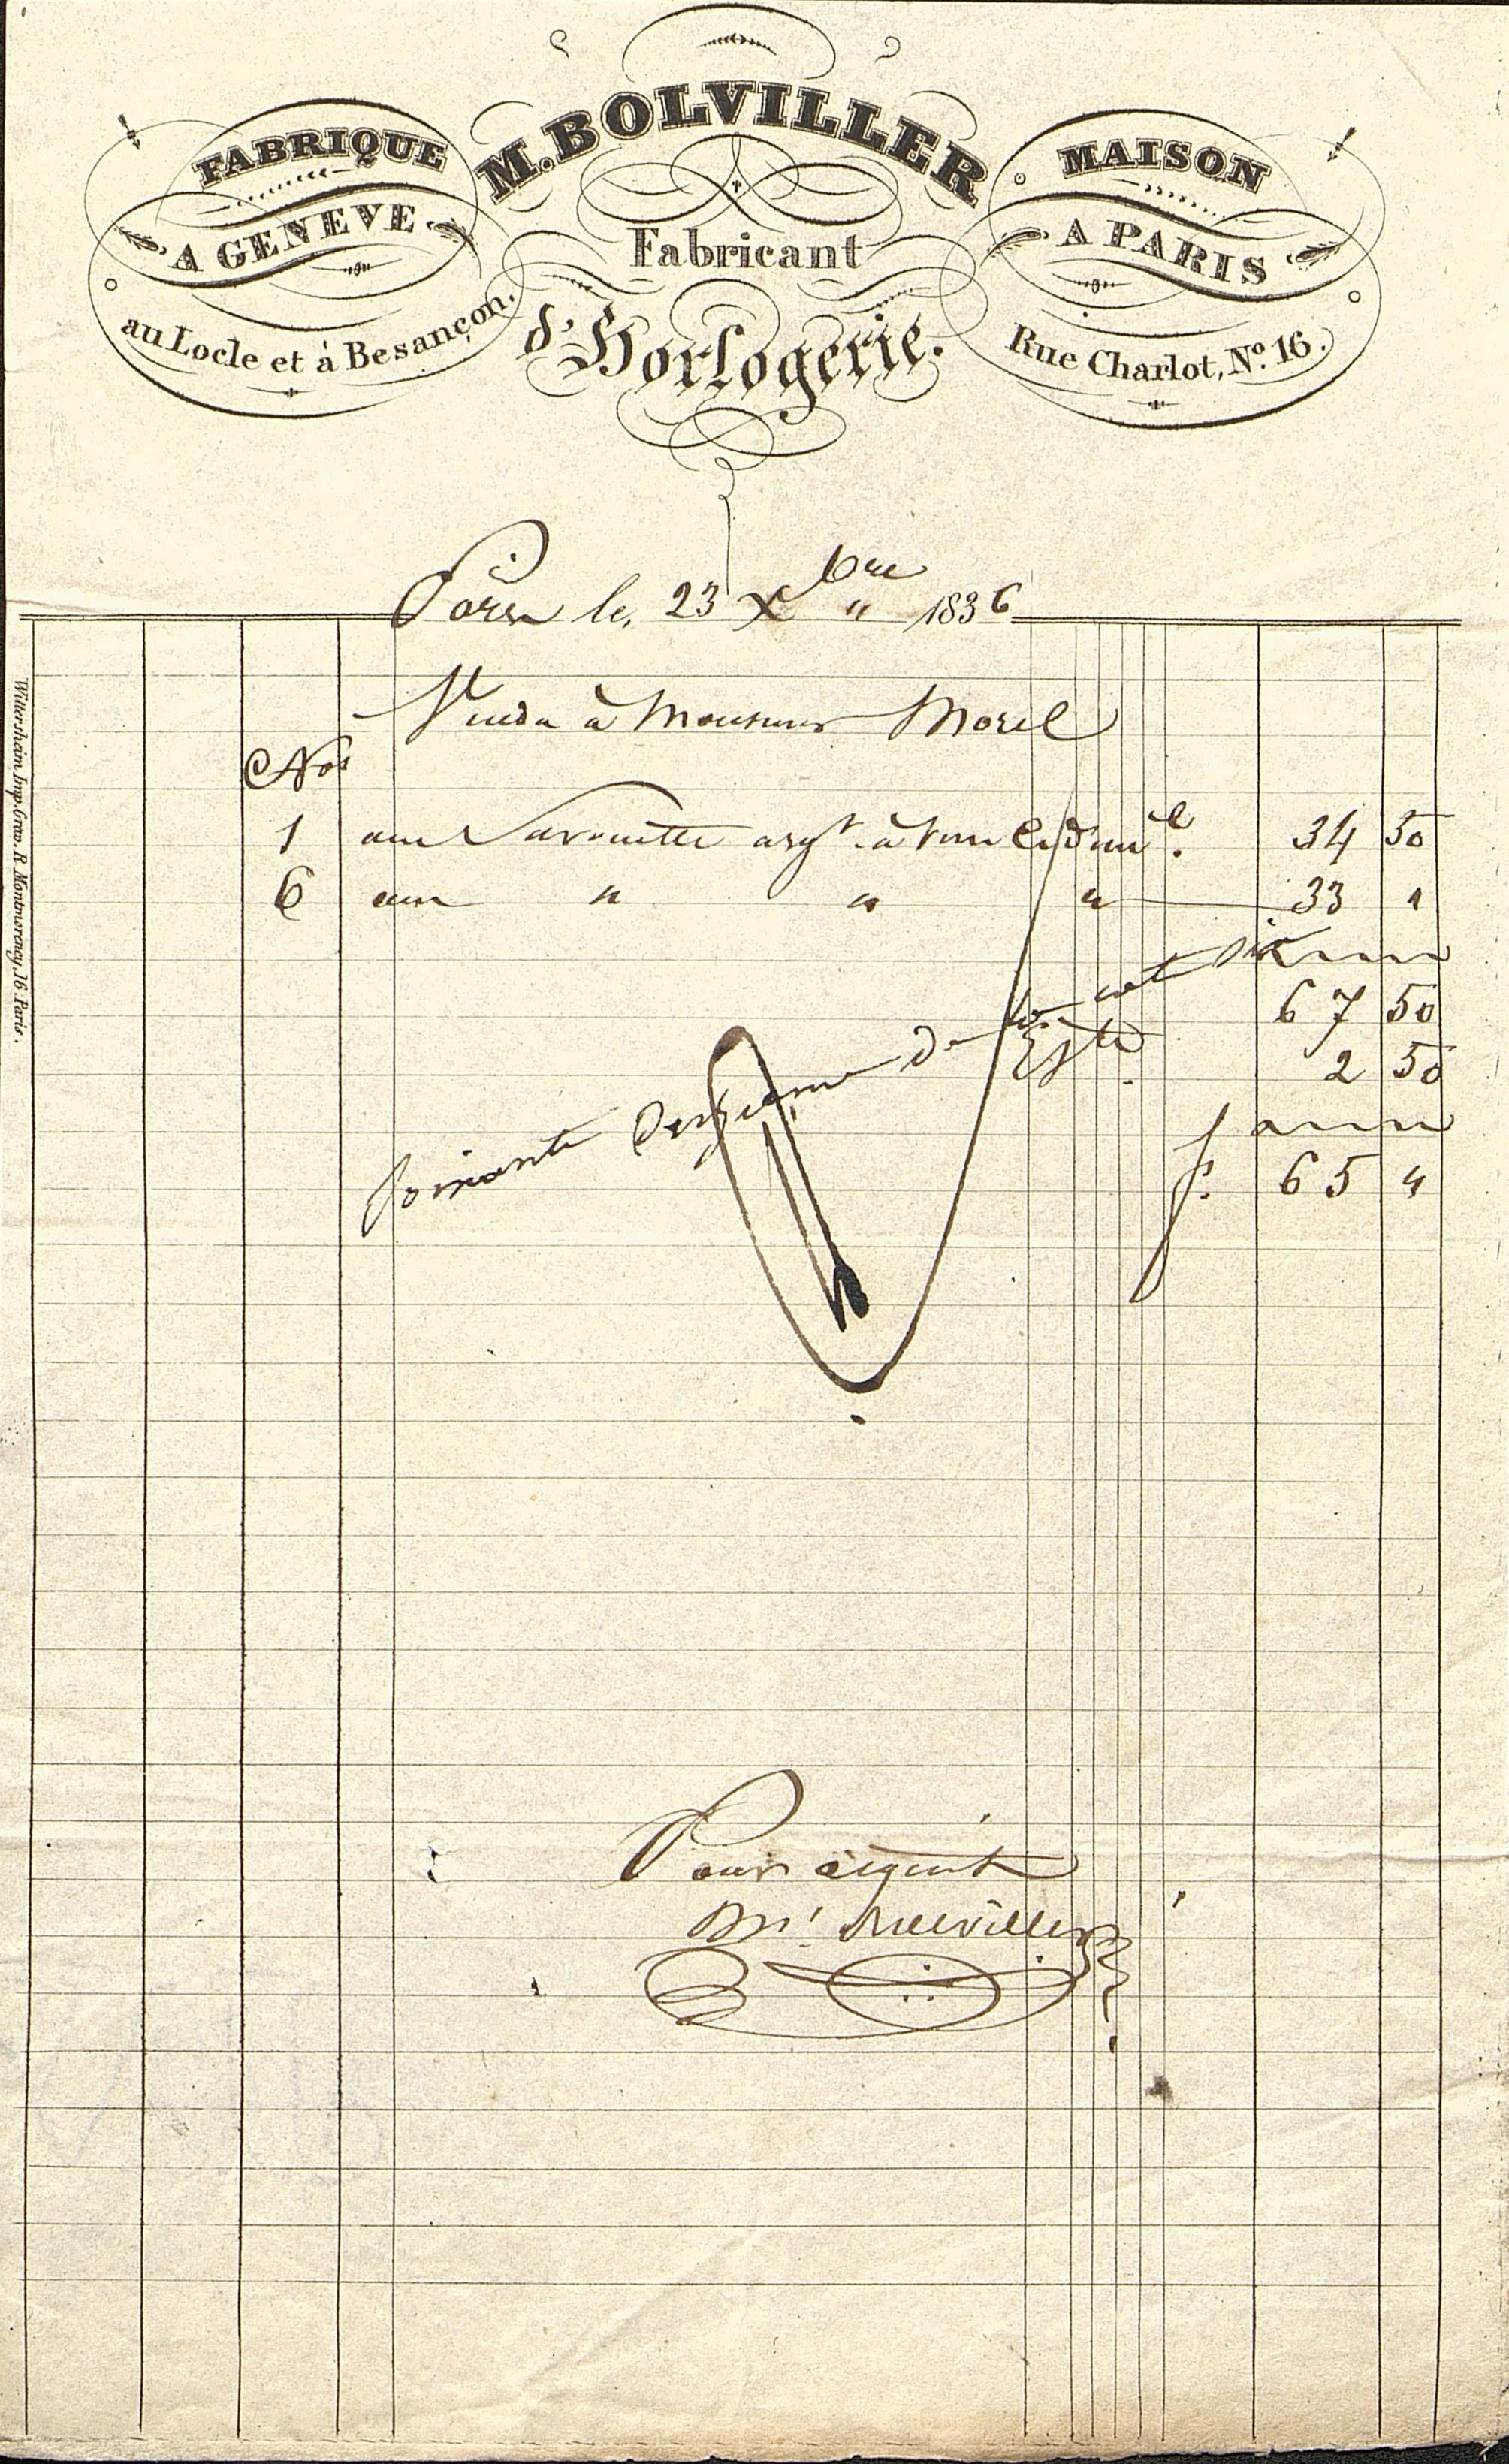 M. BOLVILLER
Fabricant
d'Horlogerie.
FABRIQUE
A GENEVE
au Locle et à Besançon.
MAISON
A PARIS
Rue Charlot, No. 16.
Paris le, 23 Xbre " 1836
Vendu à Monsieur Morel
Nos
1 une Savonette argt. à 34 50
6 une " " " 33 "
67 50
Escte. 2 50
f. 65 "
Pour acquit
Bolviller
Wittersheim Imp. Grav. R. Montmorency, 16. Paris.